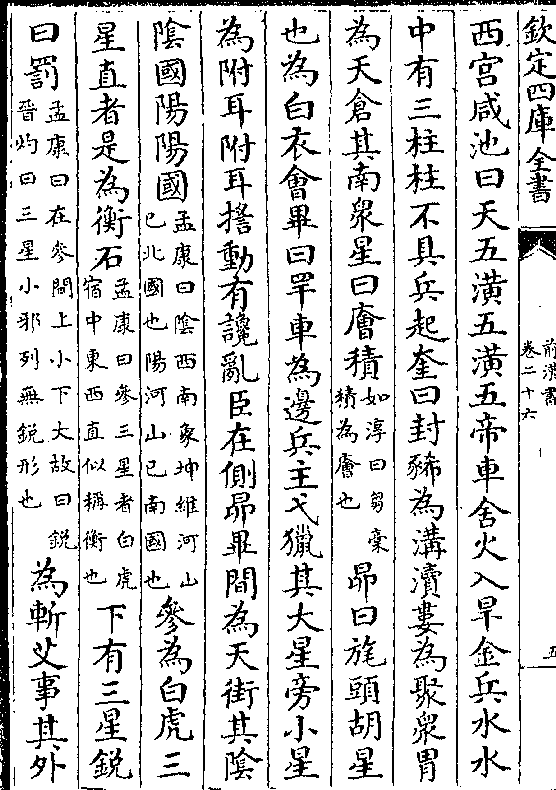 欽定四庫全書
前漢書
卷二十六
五
西宫咸池曰天五潢五潢五帝車舍火入旱金兵水水
中有三柱柱不具兵起奎曰封豨為溝瀆婁為聚衆胃
為天倉其南衆星曰廥積如淳曰芻稾
積為廥也昴曰旄頭胡星
也為白衣會畢曰罕車為邊兵主弋獵其大星旁小星
為附耳附耳搖動有讒亂臣在側昴畢間為天街其陰
陰國陽陽國孟康曰陰西南象坤維河山
已北國也陽河山已南國也參為白虎三
星直者是為衡石孟康曰參三星者白虎
宿中東西直似稱衡也下有三星銳
曰罰孟康曰在參間上小下大故曰銳
晉灼曰三星小邪列無銳形也為斬艾事其外